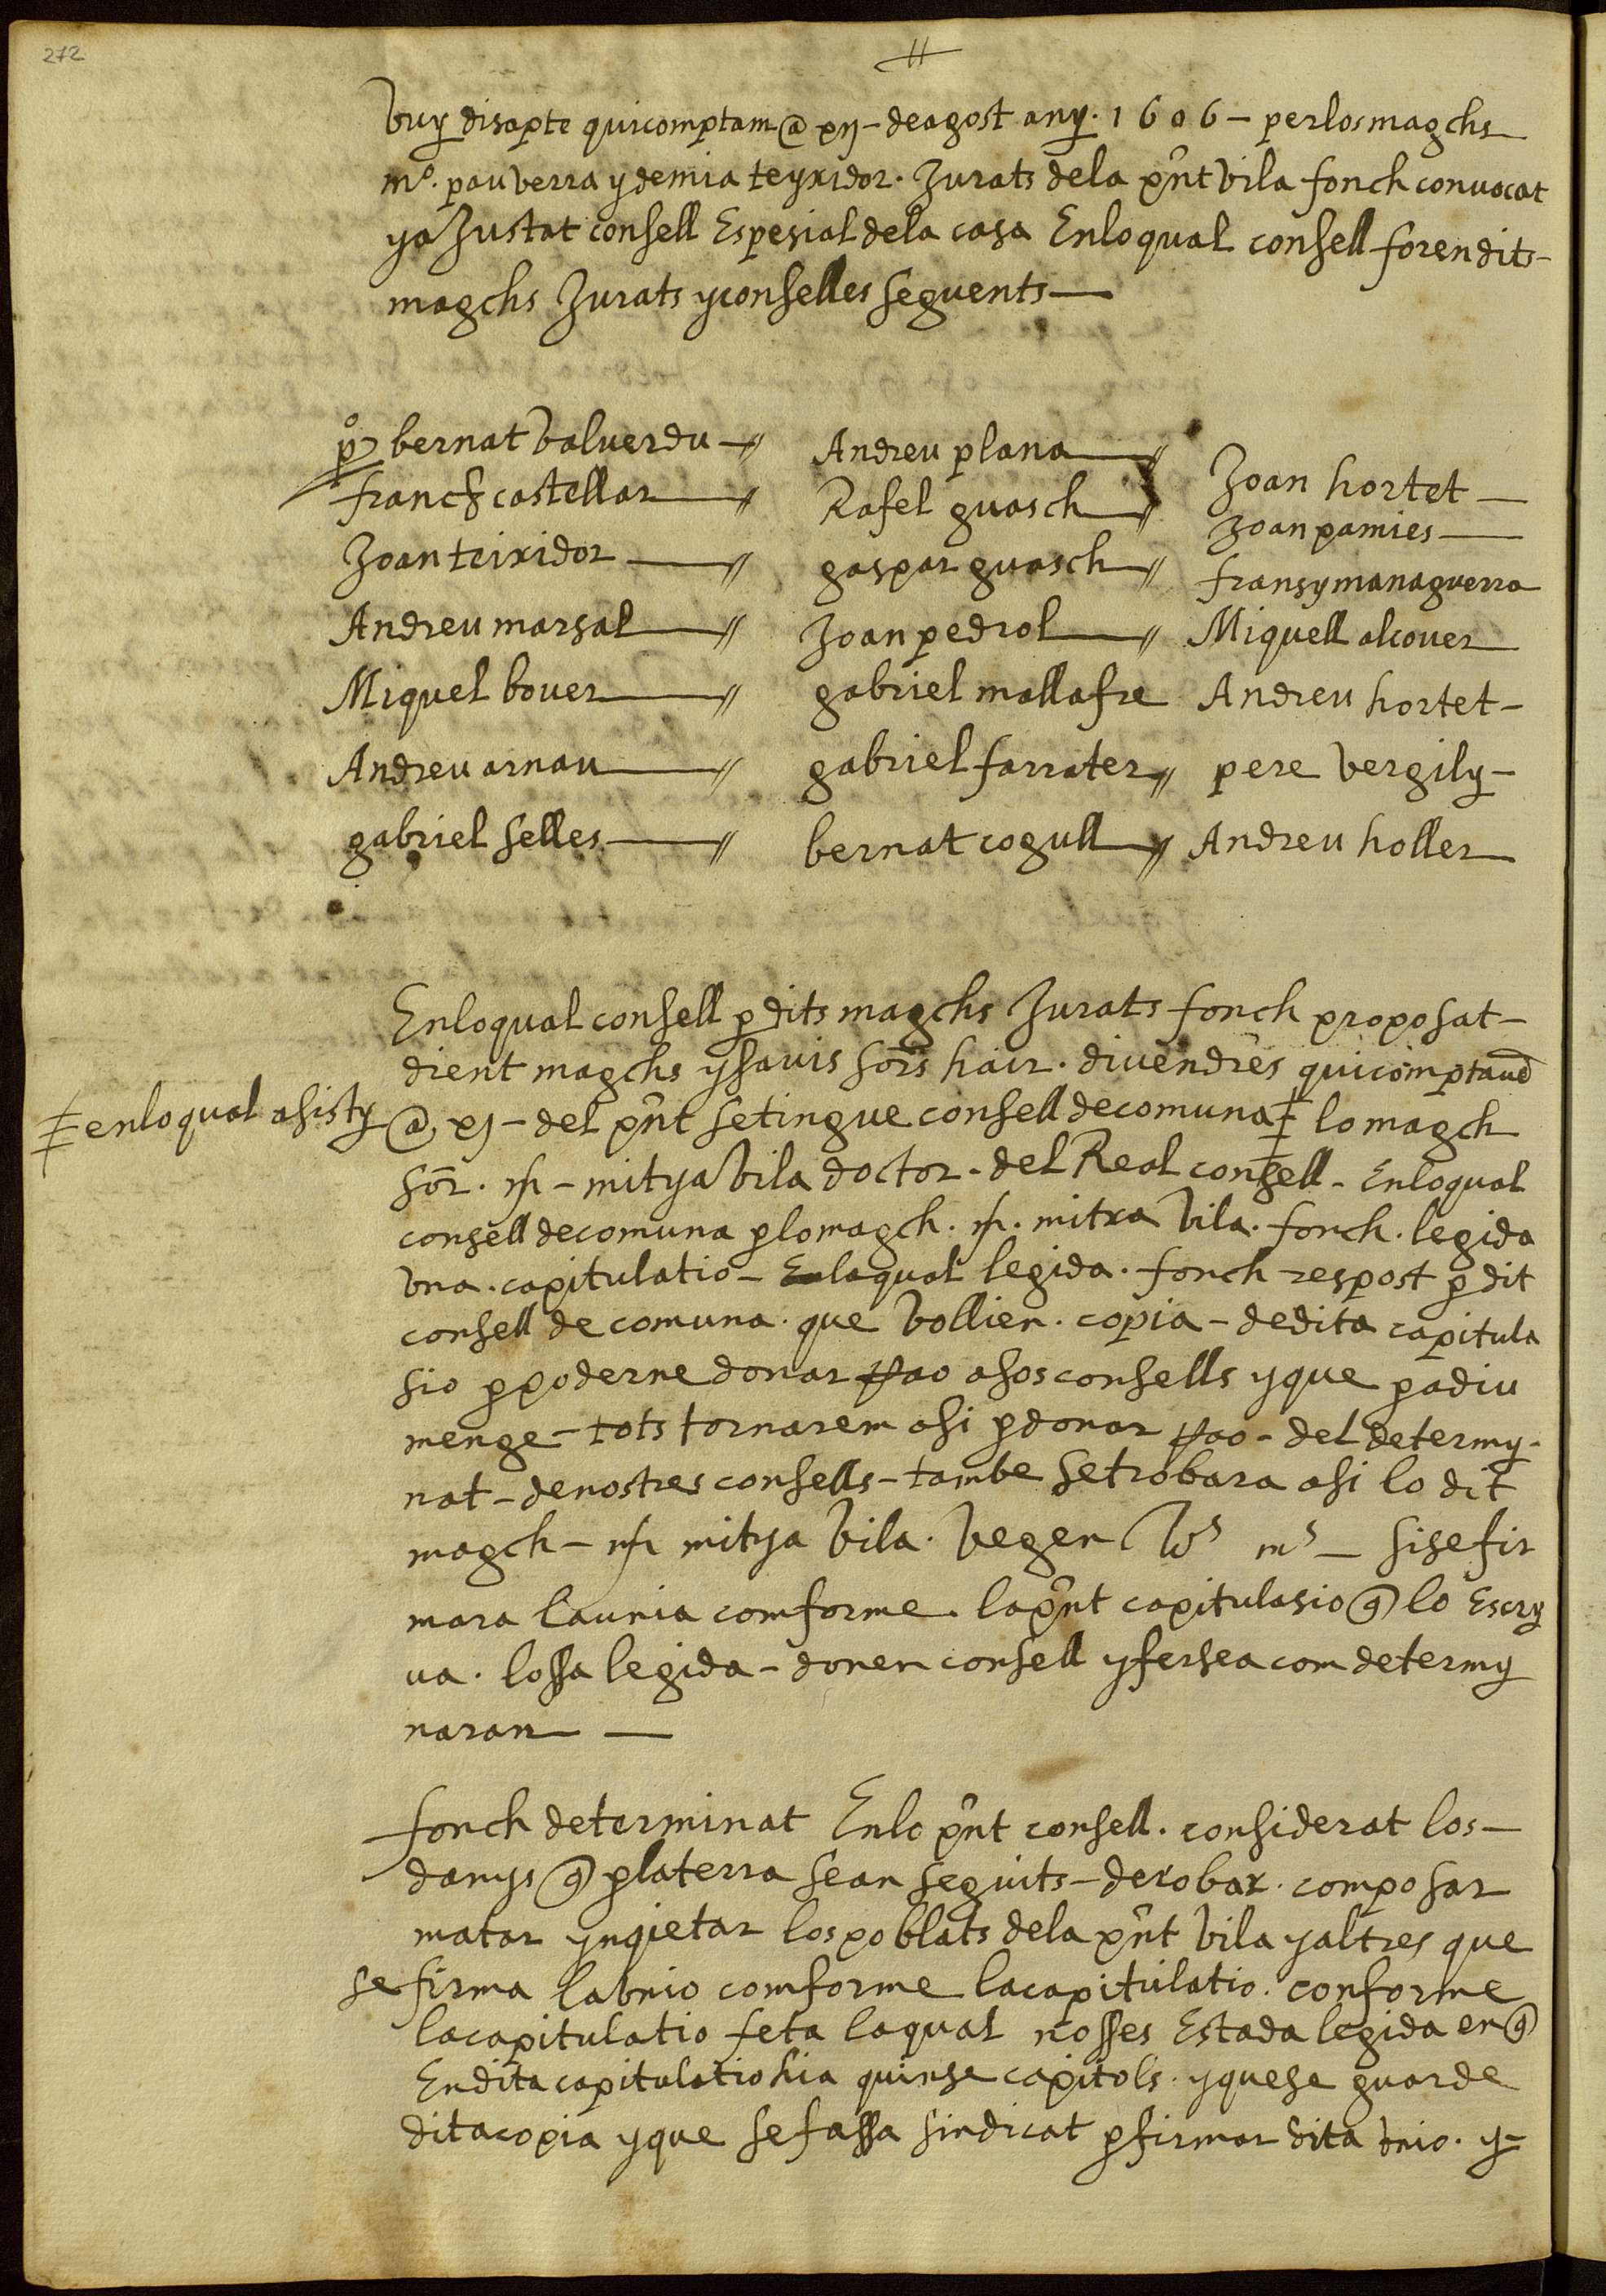 272
vuy disapte quicomptam @ xij - deagost any. 1606 - perlosmagchs
mº. pau verra y demia teyxidor. Jurats dela pñt vila fonch convocat
yaJustat consell Espesial dela casa Enloqual consell foren dits -
magchs Jurats yconselles seguents —
pº bernat valverdu —//
franch castellar —//
Joan teixidor —//
Andreu marsal —//
Miquel bover —//
Andreu arnau —//
gabriel selles —//
Andreu plana —//
Rafel guasch —//
gaspar guasch —//
Joan pedrol —//
gabriel mallafre
gabriel farrater //
bernat cogull —//
Joan hortet —
Joan pamies —
fransy managuerra
Miquell alcover
Andreu hortet -
pere vergily -
Andreu holler
Enloqual consell p dits magchs Jurats fonch proposat -
dient magchs ysavis sors hair. divendres quicomptauē
@ xj - del pñt setingue consell decomuna ‡ lo magch
‡ enloqual asisty
sor. mᵒ - mitya vila doctor - del Real consell - Enloqual
consell decomuna plomagch. mᵒ. mitxa vila. fonch. legida
vna. capitulatio - laqual legida. fonch respost p dit
consell de comuna. que vollien. copia - dedita capitula
sio ppoderne donar rao asos consells yque p adiu
menge - tots tornarem asi pdonar rao - del determy -
nat - denostres consells - tambe setrobara asi lo dit
magch - mᵒ mitya vila. vegen vs ms — sisefir
mara launia comforme. lapñt capitulasio q lo Escry
va. lossa legida - donen consell yfersea com determy
naran —
fonch determinat Enlo pñt consell. considerat los -
danys q platerra sean seguits - derobar. composar
matar ynqietar lospoblats dela pñt vila yaltres que
se firma lavnio comforme lacapitulatio. conforme
lacapitulatio feta laqual nosses Estada legida en q
Endita capitulatio hia quinse capitols. yquese guarde
ditacopia yque sefassa sindicat pfirmar dita vnio. y -